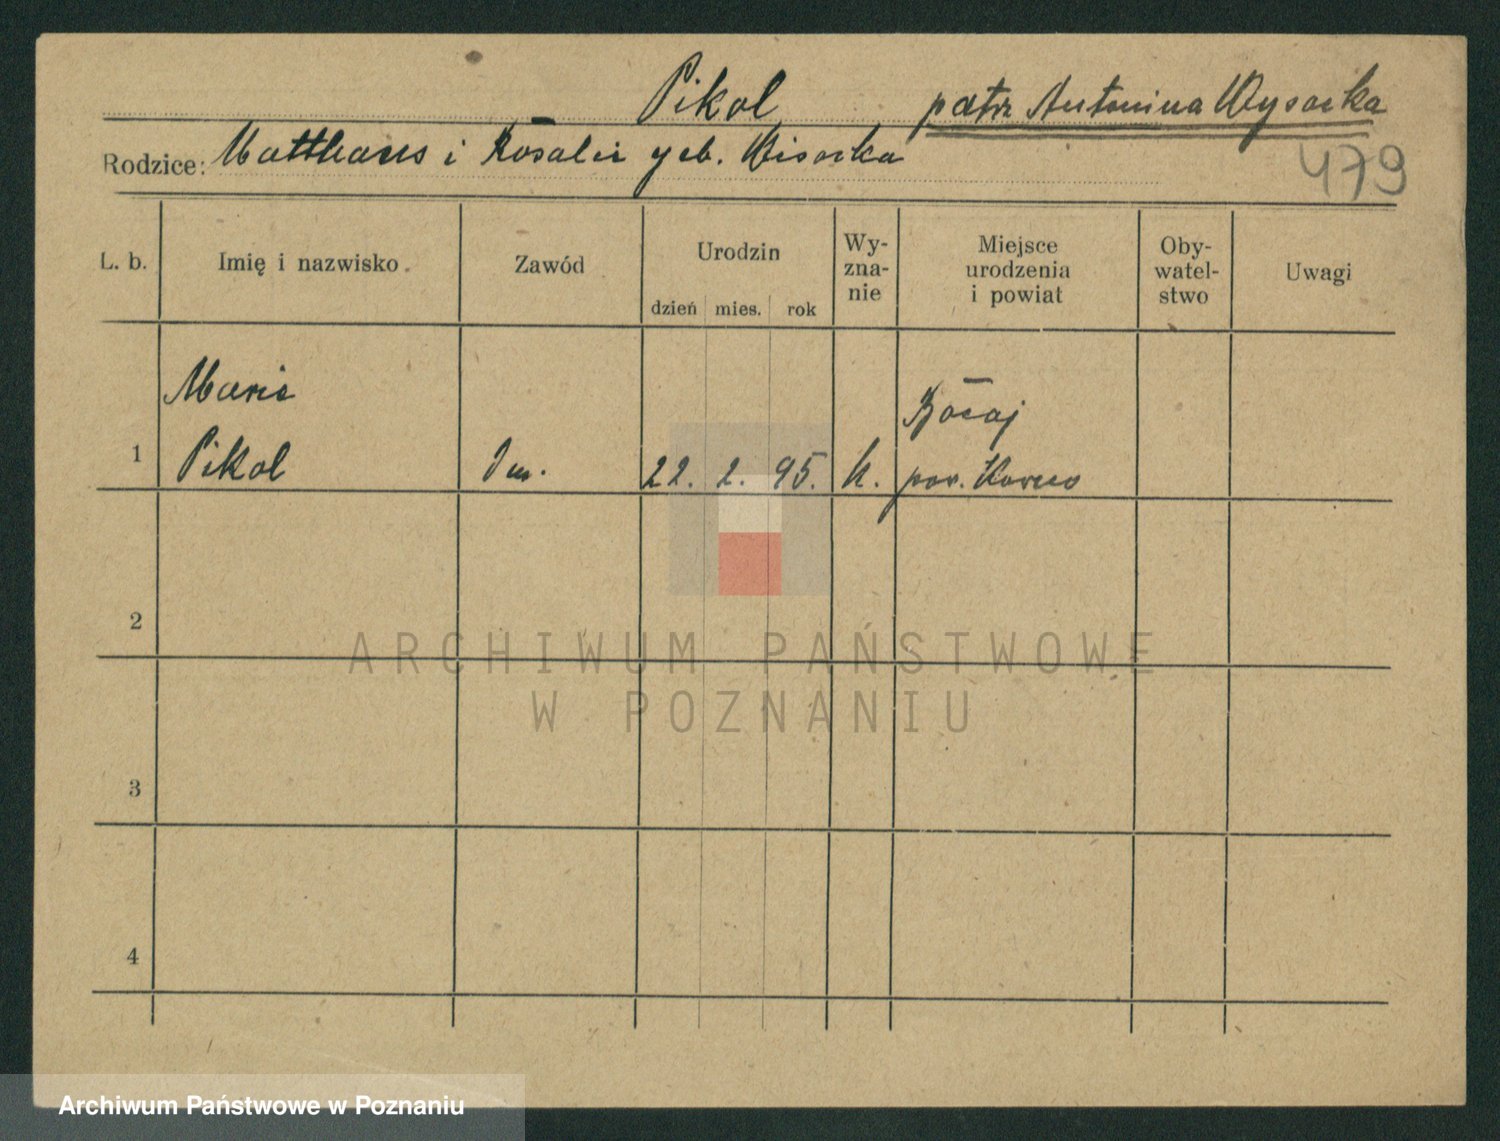 Pikol patrz Antonina Wysocka
Rodzice: Matthaeus i Rosalie geb. Wisocka
479
L. b. Imię i nazwisko. Zawód Urodzin Wy-zna-nie Miejsce urodzenia i powiat Oby-watel-stwo Uwagi
dzień mies. rok
Marie
1 Pikol 22. 2. 95. k. pow.
2
3
4
ARCHIWUM PAŃSTWOWE
W POZNANIU
Archiwum Państwowe w Poznaniu